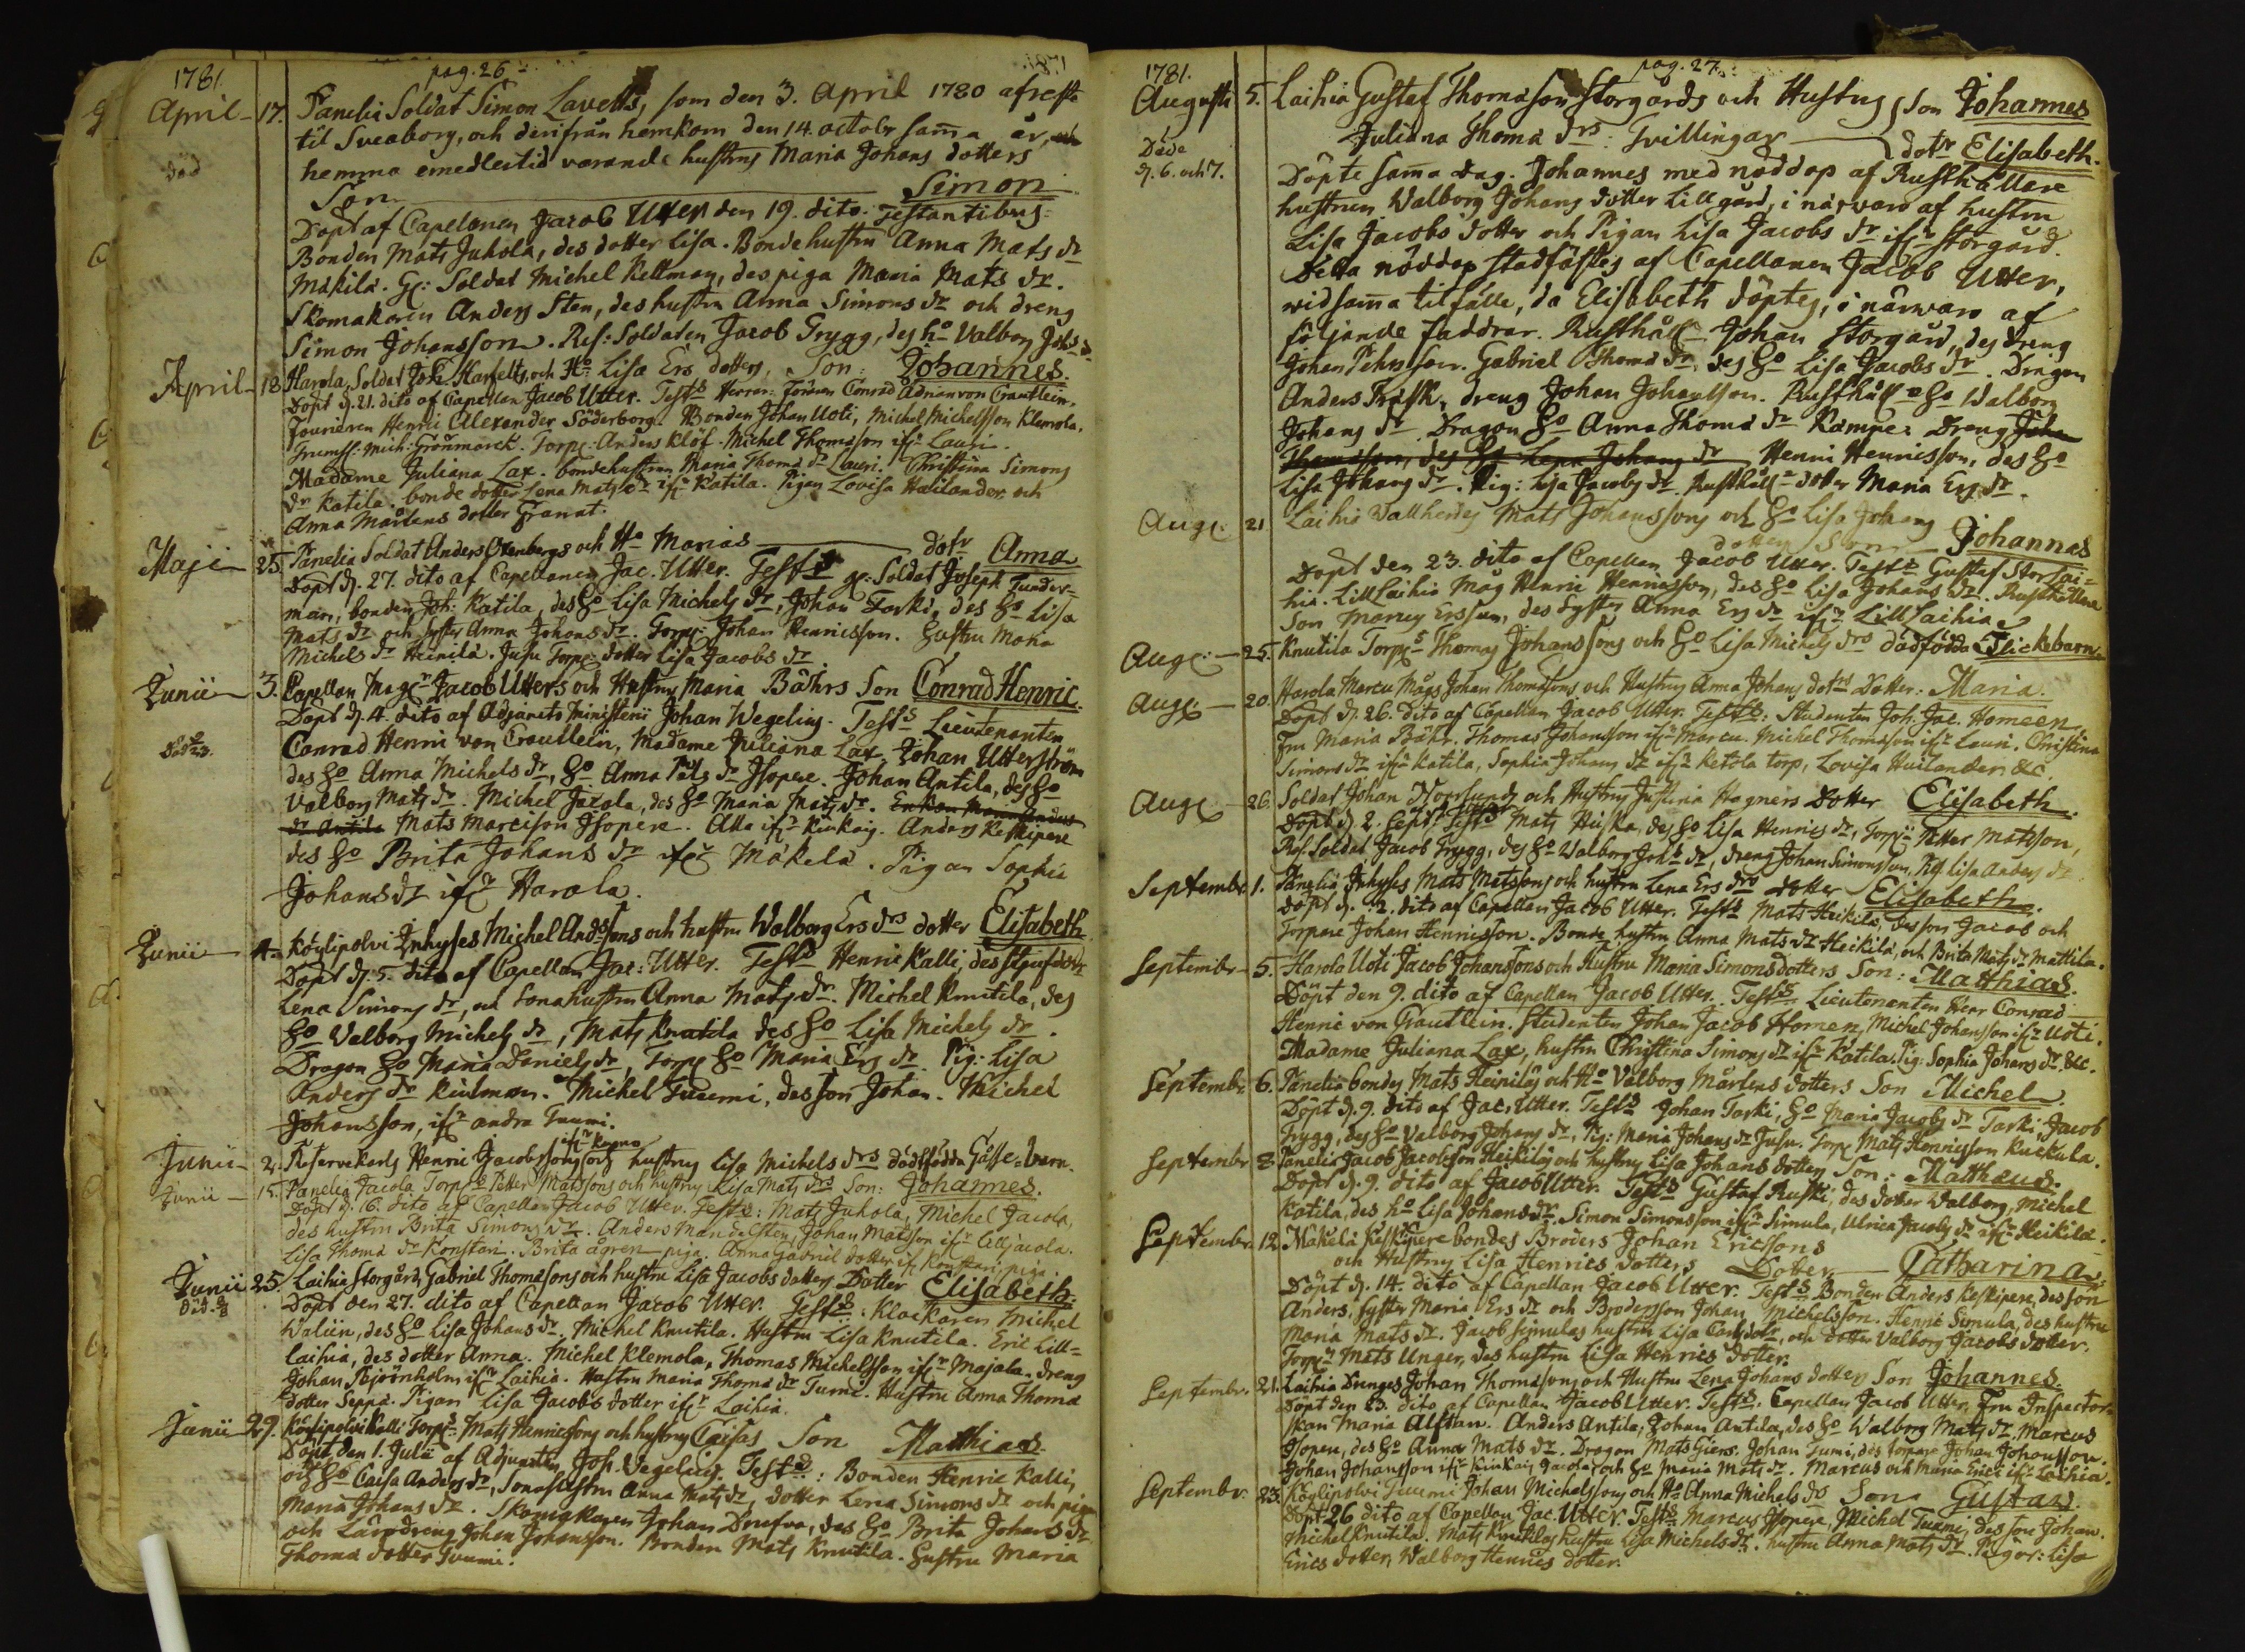 1781.
pag. 26
April 17. Panelia Soldat Simon Lavells, som den 3. April 1780 afreste
til Sveaborg, och derifrån hemkom den 14. octobr samma år,
hemma emedlertid varande hustrus Maria Johans dotters
död
Son Simon
Döpt af Capelanen Jacob Utter den 19. dito. Testantibus:
Bonden Mats Juhola, des dotter Lisa. Bonde hustru Anna Mats dr
Mäkilä. Gl: Soldat Michel Kellman, des piga Maria Mats dr.
Skomakaren Anders Sten, des hustru Anna Simons dr och dreng
Simon Johansson. Res: Soldaten Jacob Trygg, des ho Valborg Johs dr
April 18 Harola Soldat Joh: Harfelts, och Ho Lisa Ers dotters, Son: Johannes.
Döpt d. 21. dito af Capellan Jacob Utter. Tests Herrar: Conrad Adrian von Crautlein,
Foureren Henric Alexander Söderborg. Bonden Johan Uoti, Michel Michelsson Klemola,
Mich: Grönmarck. Torp: Anders Klöf. Michel Thomasson ifr Lauri.
Madame Juliana Lax. bondehustrun Maria Thoma dr Lauri. Christina Simons
dr Katila. bonde dotter Lena Mats dr ifr Katila. Pigan Lovisa Huilander och
Anna Mårtens dotter Granat.
Maji 25. Panelia Soldat Anders Stenbergs och Ho Marias dotr Anna
Döpt d. 27. dito af Capellanen Jac. Utter. Tests gl: Soldat Joseph Tunder-
man, bonden Joh: Katila, des Ho Lisa Michels dr, Johan Tarki, des Ho Lisa
Mats dr och syster Anna Johans dr. Torp: Johan Henricsson. Hustru Maria
Michels dr Heinilä. Jusu Torp: dotter Lisa Jacobs dr
Junii 3. Capellan Magr Jacob Utters och Hustrus Maria Bährs Son Conrad Henric.
Döpt d. 4. dito af Adjuncto Ministerii Johan Wegelius. Tests Lieutenanten
Conrad Henric von Crautlein, Madame Juliana Lax, Johan Utterström
des Ho Anna Michels dr, Ho Anna Påls dr Isopere. Johan Antila, des Ho
Valborg Mats dr. Michel Jacola, des Ho Maria Mats dr. Enkan Maria Anders
dr Antila Mats Marcison Isopere. Atta ifr Kiukais. Anders Keskipere
des Ho Brita Johans dr ifr Mäkelä. Pigan Sophia
Johans dr ifr Harola.
Junii 4. Köylipolvi Inhyses Michel Andssons och hustru Walborg Ers drs dotter Elisabeth
Döpt d. 5. dito af Capellan Jac: Utter. Tests Henric Kalli, des styufdotr
Lena Simons dr, och Sonahustrun Anna Mats dr. Michel Knutila, des
Ho Valborg Michels dr, Mats Knutila des Ho Lisa Michels dr.
Dragon Ho Maria Daniels dr, Torp Ho Maria Ers dr. Pig: Lisa
Anders dr Kiulman. Michel Tuumi, des son Johan. Michel
Johansson, ifr andra Tuumi.
Junii 2. Reservekarls Henric Jacobssons och hustrus Lisa Michels drs dödfödda Gåsse-barn.
Junii 15. Panelia Jacola Torps Petter Matssons och hustrus Lisa Mats drs Son: Johannes.
Döpt d. 16. dito af Capellan Jacob Utter. Tests: Mats Juhola, Michel Jacola,
des hustru Brita Simons dr. Anders Mandelsten, Johan Matsson ifr Lilljacola.
Lisa Thoma dr Konstari. Brita Ågren piga. Anna Gabriel dotter ifr Konstari piga.
Junii 25. Laihia Storgård, Gabriel Thomasons och hustru Lisa Jacobs dotters Dotter Elisabeth.
Döpt den 27. dito af Capellan Jacob Utter. Tests: Klockaren Michel
Waliin, des Ho Lisa Johans dr. Michel Knutila. Hustru Lisa Knutila. Eric Lill-
laihia, des dotter Anna. Michel Klemola, Thomas Michelsson ifr Majala. dreng
Johan Björnholm ifr Laihia. Hustru Maria Thoma dr Tumi. Hustru Anna Thoma
dotter Seppä. Pigan Lisa Jacobs dotter ifr Laihia.
Junii 29. Köylipolvi Kalli Torps Mats Henricssons och hustrus Caisas Son Matthias
Döpt den 1. Julii af Adjuncten Joh. Wegelius. Tests: Bonden Henric Kalli,
och Ho Caisa Anders dr, Sonahustru Anna Mats dr, dotter Lena Simons dr och piga
Maria Johans dr. Skomakaren Johan Drufva, des Ho Brita Johans dr
och Lärodreng Johan Johansson. Bonden Mats Knutila. Hustru Maria
Thoma dotter Tuumi.
1781.
pag. 27.
Augusti 5. Laihia Gustaf Thomasson Storgårds och Hustrus Son Johannes
Juliana Thoma drs. Tvillingar dotr Elisabeth.
Döde
d. 6. och 7.
Döpte samma dag. Johannes med nöddop af Rusthållare
hustrun Walborg Johans dotter Lillgård, i närvaro af hustru
Lisa Jacobs dotter och Pigan Lisa Jacobs dr ifr Storgård.
Detta nöddop stadfästes af Capellanen Jacob Utter,
vid samma tilfälle, då Elisabeth döptes, i närvaro af
följande faddrar. Rusthåll Johan Storgård, des dreng
Johan Pehrsson. Gabriel Thoma, des Ho Lisa Jacobs dr. Dragon
Anders Frisk, dreng Johan Johansson. Rusthåll Ho Walborg
Johans dr. Dragon Ho Anna Thoma dr Kämpe. Dreng Johan
Thomasson, des Ho Lena Johans dr Henric Henricsson, des Ho
Lisa Johans dr. Pig: Lisa Jacobs dr. Rusthåll dotter Maria Ers dr.
Aug: 21 Laihia Wallherdes Mats Johanssons och Ho Lisa Johans
dotters Son Johannes
Döpt den 23. dito af Capellan Jacob Utter. Tests Gustaf Storlai-
hia. Lill Laihia Måg Henric Henricsson, des Ho Lisa Johans dr. Rusthållare
Son Marcus Ersson, des syster Anna Ers dr ifr Lill Laihia.
Aug: 25. Knutila Torps Thomas Johanssons och Ho Lisa Michels drs dödfödda Flickebarn.
Aug: 20. Harola Marcu Mågs Johan Thomasons och Hustrus Anna Johans dotrs Dotter: Maria.
Döpt d. 26. Dito af Capellan Jacob Utter. Tests: Studenten Joh. Jac. Homeen,
Fru Maria Bähr. Thomas Johansson ifr Marcu. Michel Thomasson ifr Lauri. Christina
Simons dr ifr Katila, Sophia Johans dr ifr Ketola torp, Lovisa Huilander &c.
Aug: 26. Soldat Johan Norrlunds och Hustrus Justina Hagners Dotter Elisabeth.
Döpt d. 2. Sept. Tests Mats Huska, des Ho Lisa Henrics dr, Torp: Petter Matsson,
Res. Soldat Jacob Trygg, des Ho Walborg Johs dr, dreng Johan Simonsson, Pig. Lisa Anders dr.
Septembr. 1. Panelia Inhyses Mats Matssons och hustru Lena Ers drs dotter Elisabeth.
Döpt d. 2. dito af Capellan Jacob Utter. Tests Mats Heikilä, des son Jacob och
Torpare Johan Henricsson. Bonde hustru Anna Mats dr Heikilä, och Brita Mats dr Mattila.
Septembr. 5. Harola Uoti Jacob Johanssons och Hustru Maria Simonsdotters Son: Matthias.
Döpt den 9. dito af Capellan Jacob Utter. Tests Lieutenanten Herr Conrad
Henric von Crautlein. Studenten Johan Jacob Homen, Michel Johansson ifr Uoti.
Madame Juliana Lax, hustru Christina Simons dr ifr Katila. Pig: Sophia Johans dr. &c.
Septembr. 6. Panelia bondes Mats Heiniläs och Ho Valborg Mårtens dotters Son Michel.
Döpt d. 9. dito af Jac. Utter. Tests Johan Tarki, Ho Maria Jacobs dr Tarki, Jacob
Trygg, des Ho Valborg Johans dr, Pig: Maria Johans dr Jusu. Torp Mats Henricsson Kuckula.
Septembr 8. Panelia Jacob Jacobsson Heikiläs och hustrus Lisa Johans dotters Son: Matthæus.
Döpt d. 9. dito af Jacob Utter. Tests Gustaf Ruski, des dotter Valborg, Michel
Katila, des ho Lisa Johansdr. Simon Simonsson ifr Simula, Ulrica Jacobs dr ifr Heikilä.
Septembr. 12. Mäkelä Keskipere bondes Broders Johan Ericssons
och Hustrus Lisa Henrics dotters Dotter Catharina.
Döpt d. 14. dito af Capellan Jacob Utter. Tests Bonden Anders Keskipere, des son
Anders, syster Maria Ers dr och Brodersson Johan Michelsson. Henric Simula, des hustru
Maria Mats dr. Jacob Simulas hustru Lisa Carlsdotr, och dotter Valborg Jacobs dotter.
Torp: Mats Unger, des hustru Lisa Henrics dotter.
Septembr. 21. Laihia Drenges Johan Thomasons och Hustru Lena Johans dotters Son Johannes.
Döpt den 23. dito af Capellan Jacob Utter. Tests. Capellan Jacob Utter. Fru Inspector-
skan Maria Alftan. Anders Antila, Johan Antila, des Ho Walborg Mats dr. Marcus
Isopere, des Ho Anna Mats dr. Dragon Mats Giers. Johan Tumi, des torpare Johan Johansson.
Johan Johansson ifr Kiukais Jacola och Ho Maria Mats dr. Marcus och Maria Erics ifr Laihia.
Septembr. 23. Köylipolvi Tuumi Johan Michelssons och Ho Anna Michels ds Son Gustaf.
Döpt 26 dito af Capellan Jac. Utter. Tests Marcus Isopere, Michel Tuumi, des son Johan.
Michel Knutila. Mats Knutilas hustru Lisa Michels dr. hustru Anna Mats dr. Pigor: Lisa
Erics dotter, Walborg Henrics dotter.